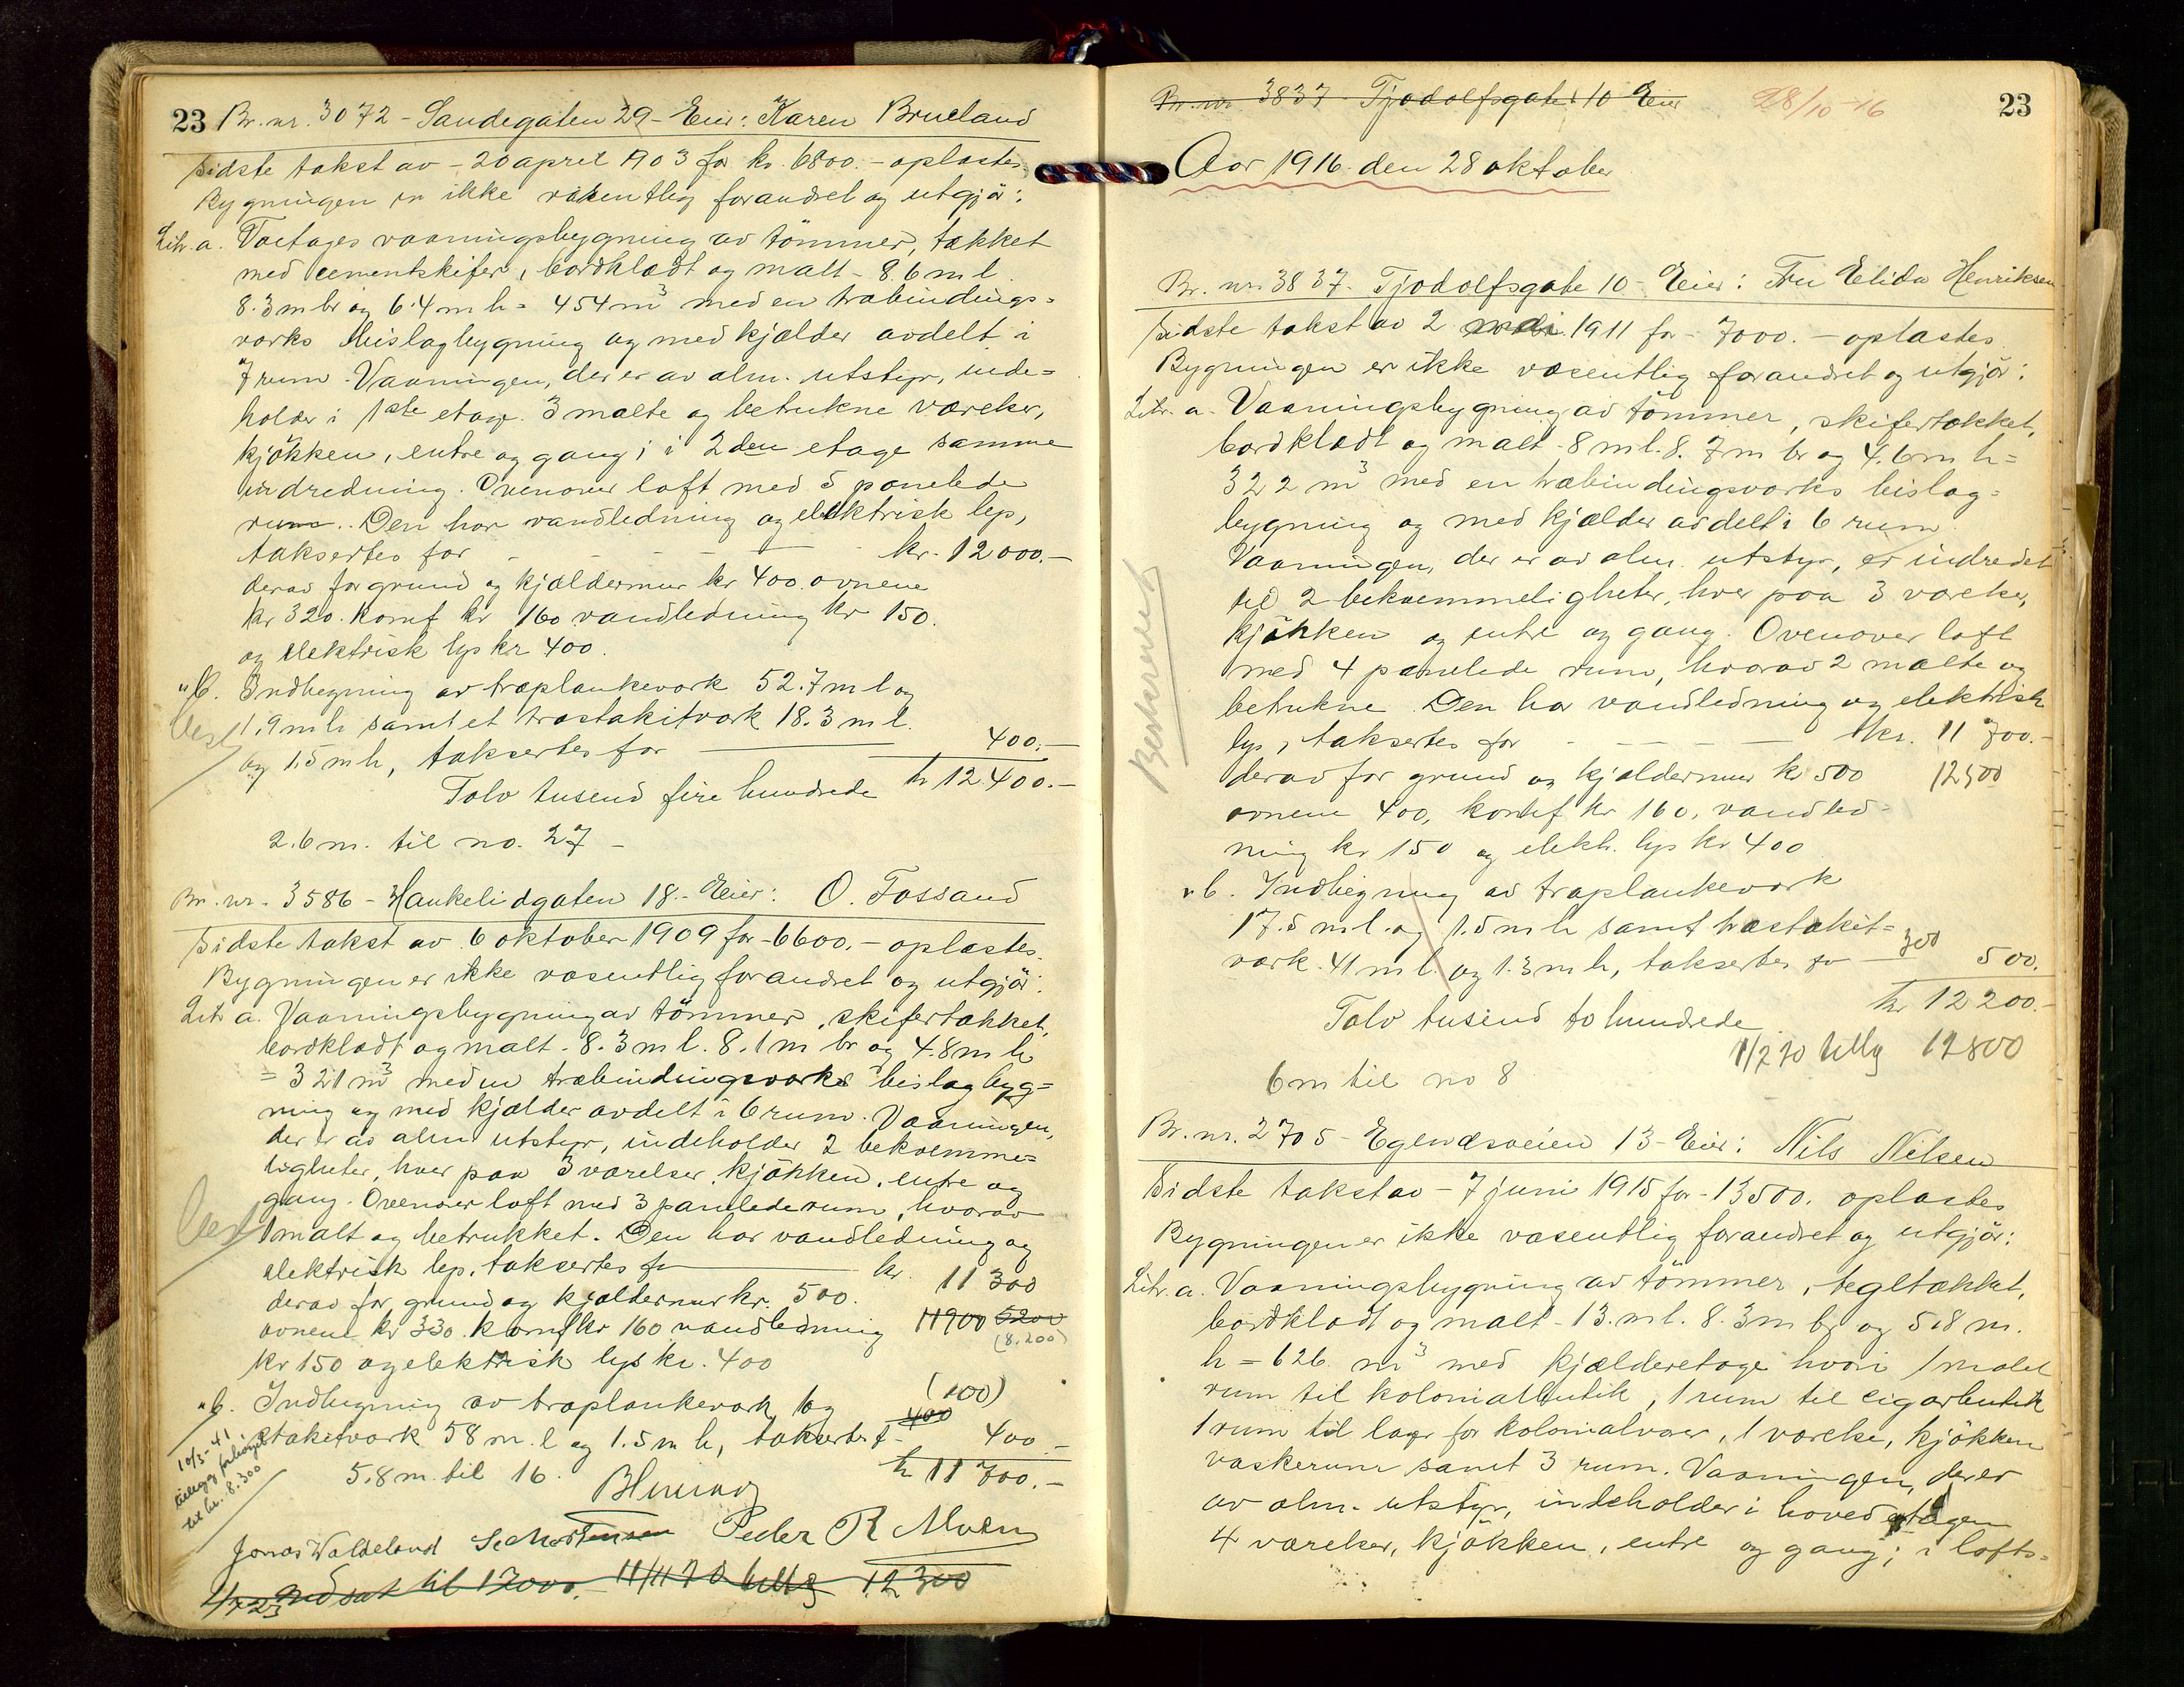 23 Br. nr. 3072 - Sandegaten 29 - Eier: Karen Brueland
Sidste takst av - 20 april 1903 for kr. 6800.- oplæstes
Bygningen er ikke væsentlig forandret og utgjör:
Litr. a. Toetages vaaningsbygning av tömmer, tækket
med cementskifer, bordklædt og malt - 8.6 m l
8.3 m br og 6.4 m h = 454 m³ med en træbindings-
verks bislagbygning og med kjælder avdelt i
7 rum. Vaaningen, der er av alm. utstyr, inde-
holder i 1ste etage 3 malte og betrukne værelser,
kjökken, entre og gang; i 2den etage samme
indredning. Ovenover loft med 5 panelede
rum. Den har vandledning og elektrisk lys,
taksertes for - - - - kr. 12000.-
derav for grund og kjældermur kr 400. ovnene
kr 320. komf kr 160 vandledning kr 150.
og elektrisk lys kr 400.
" b. Indhegning av træplankeverk 52.7 m l og
1.9 m h samt et træstakitverk 18.3 m l.
og 1.5 m h, taksertes for 400.-
Tolv tusend fire hundrede kr 12400.-
2.6 m. til no. 27 -
Br. nr. 3586 - Haukelidgaten 18. - Eier: O. Fossand
Sidste takst av 6 oktober 1909 for - 6600.- oplæstes.
Bygningen er ikke væsentlig forandret og utgjör:
Litr a. Vaaningsbygning av tömmer, skifertækket,
bordklædt og malt - 8.3 m l. 8.1 m br og 4.8 m h
= 321 m³ med en træbindingsverks bislagbyg-
ning og med kjælder avdelt i 6 rum. Vaaningen,
der er av alm utstyr, indeholder 2 bekvemme-
ligheter, hver paa 3 værelser, kjökken, entre og
gang. Ovenover loft med 3 panelede rum, hvorav
1 malt og betrukket. Den har vandledning og
elektrisk lys, taksertes for kr. 11300
derav for grund og kjældermur kr. 500.
ovnene kr 330. komf kr 160 vandledning 11900 5200
(8.200)
kr 150 og elektrisk lys kr. 400
" b. Indhegning av træplankeverk og (100)
stakitverk 58 m. l og 1.5 m h, taksertes f - 400 400.-
5.8 m. til 16. kr 11700.-
10/5-41
tillegg forhöyet
til kr. 8.300
Jonas Waldeland Peder R Moen
nedsat til 12000. 11/11 20 tillæg 12300
Br. nr. 3837 Tjodolfsgate 10 Eier 28/10-16 23
Aar 1916 den 28 oktober
Br. nr. 3837. Tjodolfsgate 10 - Eier: Fru Elida Henriksen
Sidste takst av 2 mai 1911 for - 7000.- oplæstes
Bygningen er ikke væsentlig forandret og utgjör:
Litr. a. Vaaningsbygning av tömmer, skifertækket,
bordklædt og malt - 8 m l. 8.7 m br og 4.6 m h =
322 m³ med en træbindingsverks bislag-
bygning og med kjælder avdelt i 6 rum.
Vaaningen, der er av alm. utstyr, er indredet
til 2 bekvemmeligheter, hver paa 3 værelser,
kjökken og entre og gang. Ovenover loft
med 4 panelede rum, hvorav 2 malte og
betrukne. Den har vandledning og elektrisk
lys, taksertes for - - - kr. 11700.-
derav for grund og kjældermur kr 500 12500
ovnene 400, komf kr 160, vandled-
ning kr 150 og elekt. lys kr 400
" b. Indhegning av træplankeverk
17.5 m l. og 1.5 m h samt træstakit-
værk. 41 m l og 1.3 m h, taksertes for 300 500.
Tolv tusend to hundrede kr 12200.-
1/2 20 tillæg 12800
6 m til no 8
Br. nr. 2705 - Egenæsveien 13 - Eier: Nils Nilsen
Sidste takst av - 7 juni 1915 for - 13500. oplæstes
Bygningen er ikke væsentlig forandret og utgjör:
Litr. a. Vaaningsbygning av tömmer, tegltækket,
bordklædt og malt - 13. m l. 8.3 m br og 5.8 m.
h = 626 m³ med kjælderetage hvori 1 malet
rum til kolonialbutik, 1 rum til cigarbutik
1 rum til lager for kolonialvarer, 1 værelse, kjökken
vaskerum samt 3 rum. Vaaningen, der er
av alm. utstyr, indeholder i hovedetagen
4 værelser, kjökken, entre og gang; i lofts-